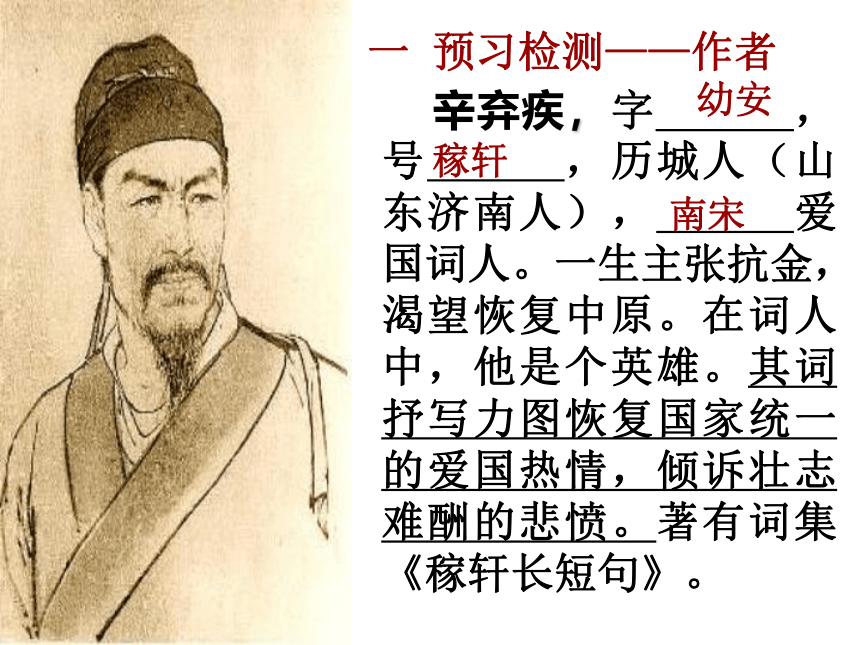 一 预习检测——作者
辛弃疾，字 幼安 ，
号稼轩 ，历城人（山
东济南人）， 南宋 爱
国词人。一生主张抗金，
渴望恢复中原。在词人
中，他是个英雄。其词
抒写力图恢复国家统一
的爱国热情，倾诉壮志
难酬的悲愤。著有词集
《稼轩长短句》。